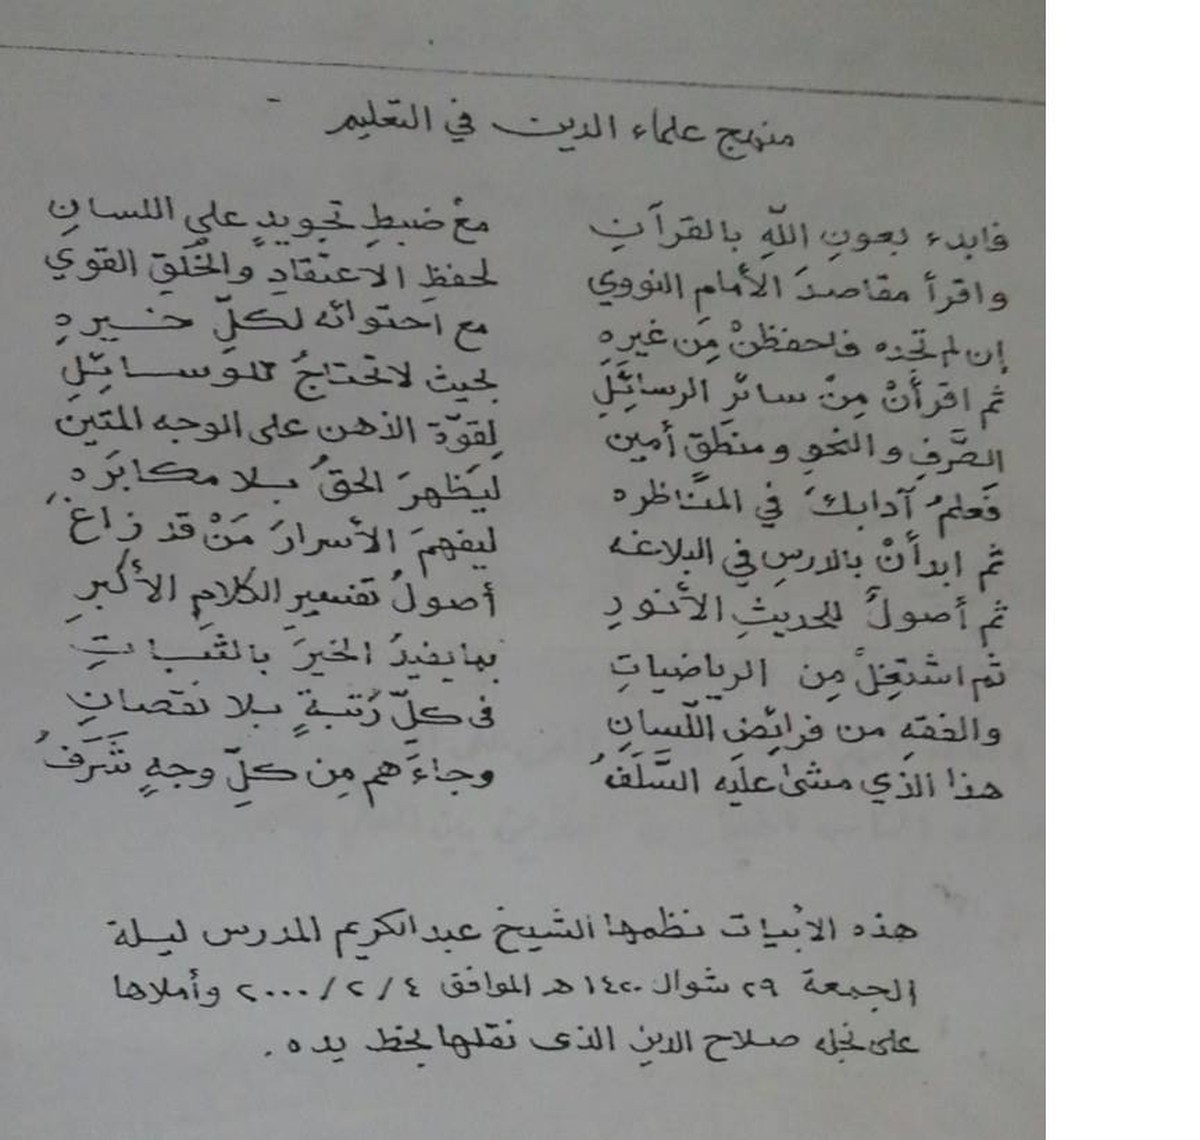 منهج علماء الدين في التعليم
فابدء بعونِ اللّهِ بالقرآنِ معْ ضبطِ تجويدٍ على اللسانِ
واقرأ مقاصدَ الأمامِ النووي لحفظِ الاعتقادِ والخُلُقِ القوي
إن لم تجده فاحفظنْ مِن غيرِهِ مع احتوائه لكلِّ خيرهِ
ثم اقرأنْ مِنْ سائرِ الرسائِلِ بحيث لا تحتاجُ للوسائِلِ
الصَّرفِ والنحوِ ومنطقٍ أمين لِقوّة الذهن على الوجه المتين
فَعلمُ آدابكَ في المناظره ليَظهرَ الحقُ بلا مكابرَه
ثم ابدأنْ بالدرسِ في البلاغه ليفهمَ الأسرارَ مَنْ قد زاغَ
ثم أصولُ للحديثِ الأنورِ أصولُ تفسيرِ الكلامِ الأكبرِ
ثم اشتغِلْ مِن الرياضياتِ بما يفيدُ الخيرَ بالثباتِ
والفقهِ من فرائِضِ اللّسانِ في كلِّ رُتبةٍ بلا نقصانِ
هذا الذي مشى عليه السَّلَفُ وجاءَهم مِن كلِّ وجهٍ شَرَفُ
هذه الأبيات نظمها الشيخ عبدالكريم المدرس ليلة
الجمعة ٢٩ شوال ١٤٢٠ هـ الموافق ٤ /٢ /٢٠٠٠ وأملاها
على نجله صلاح الدين الذى نقلها بخط يده .